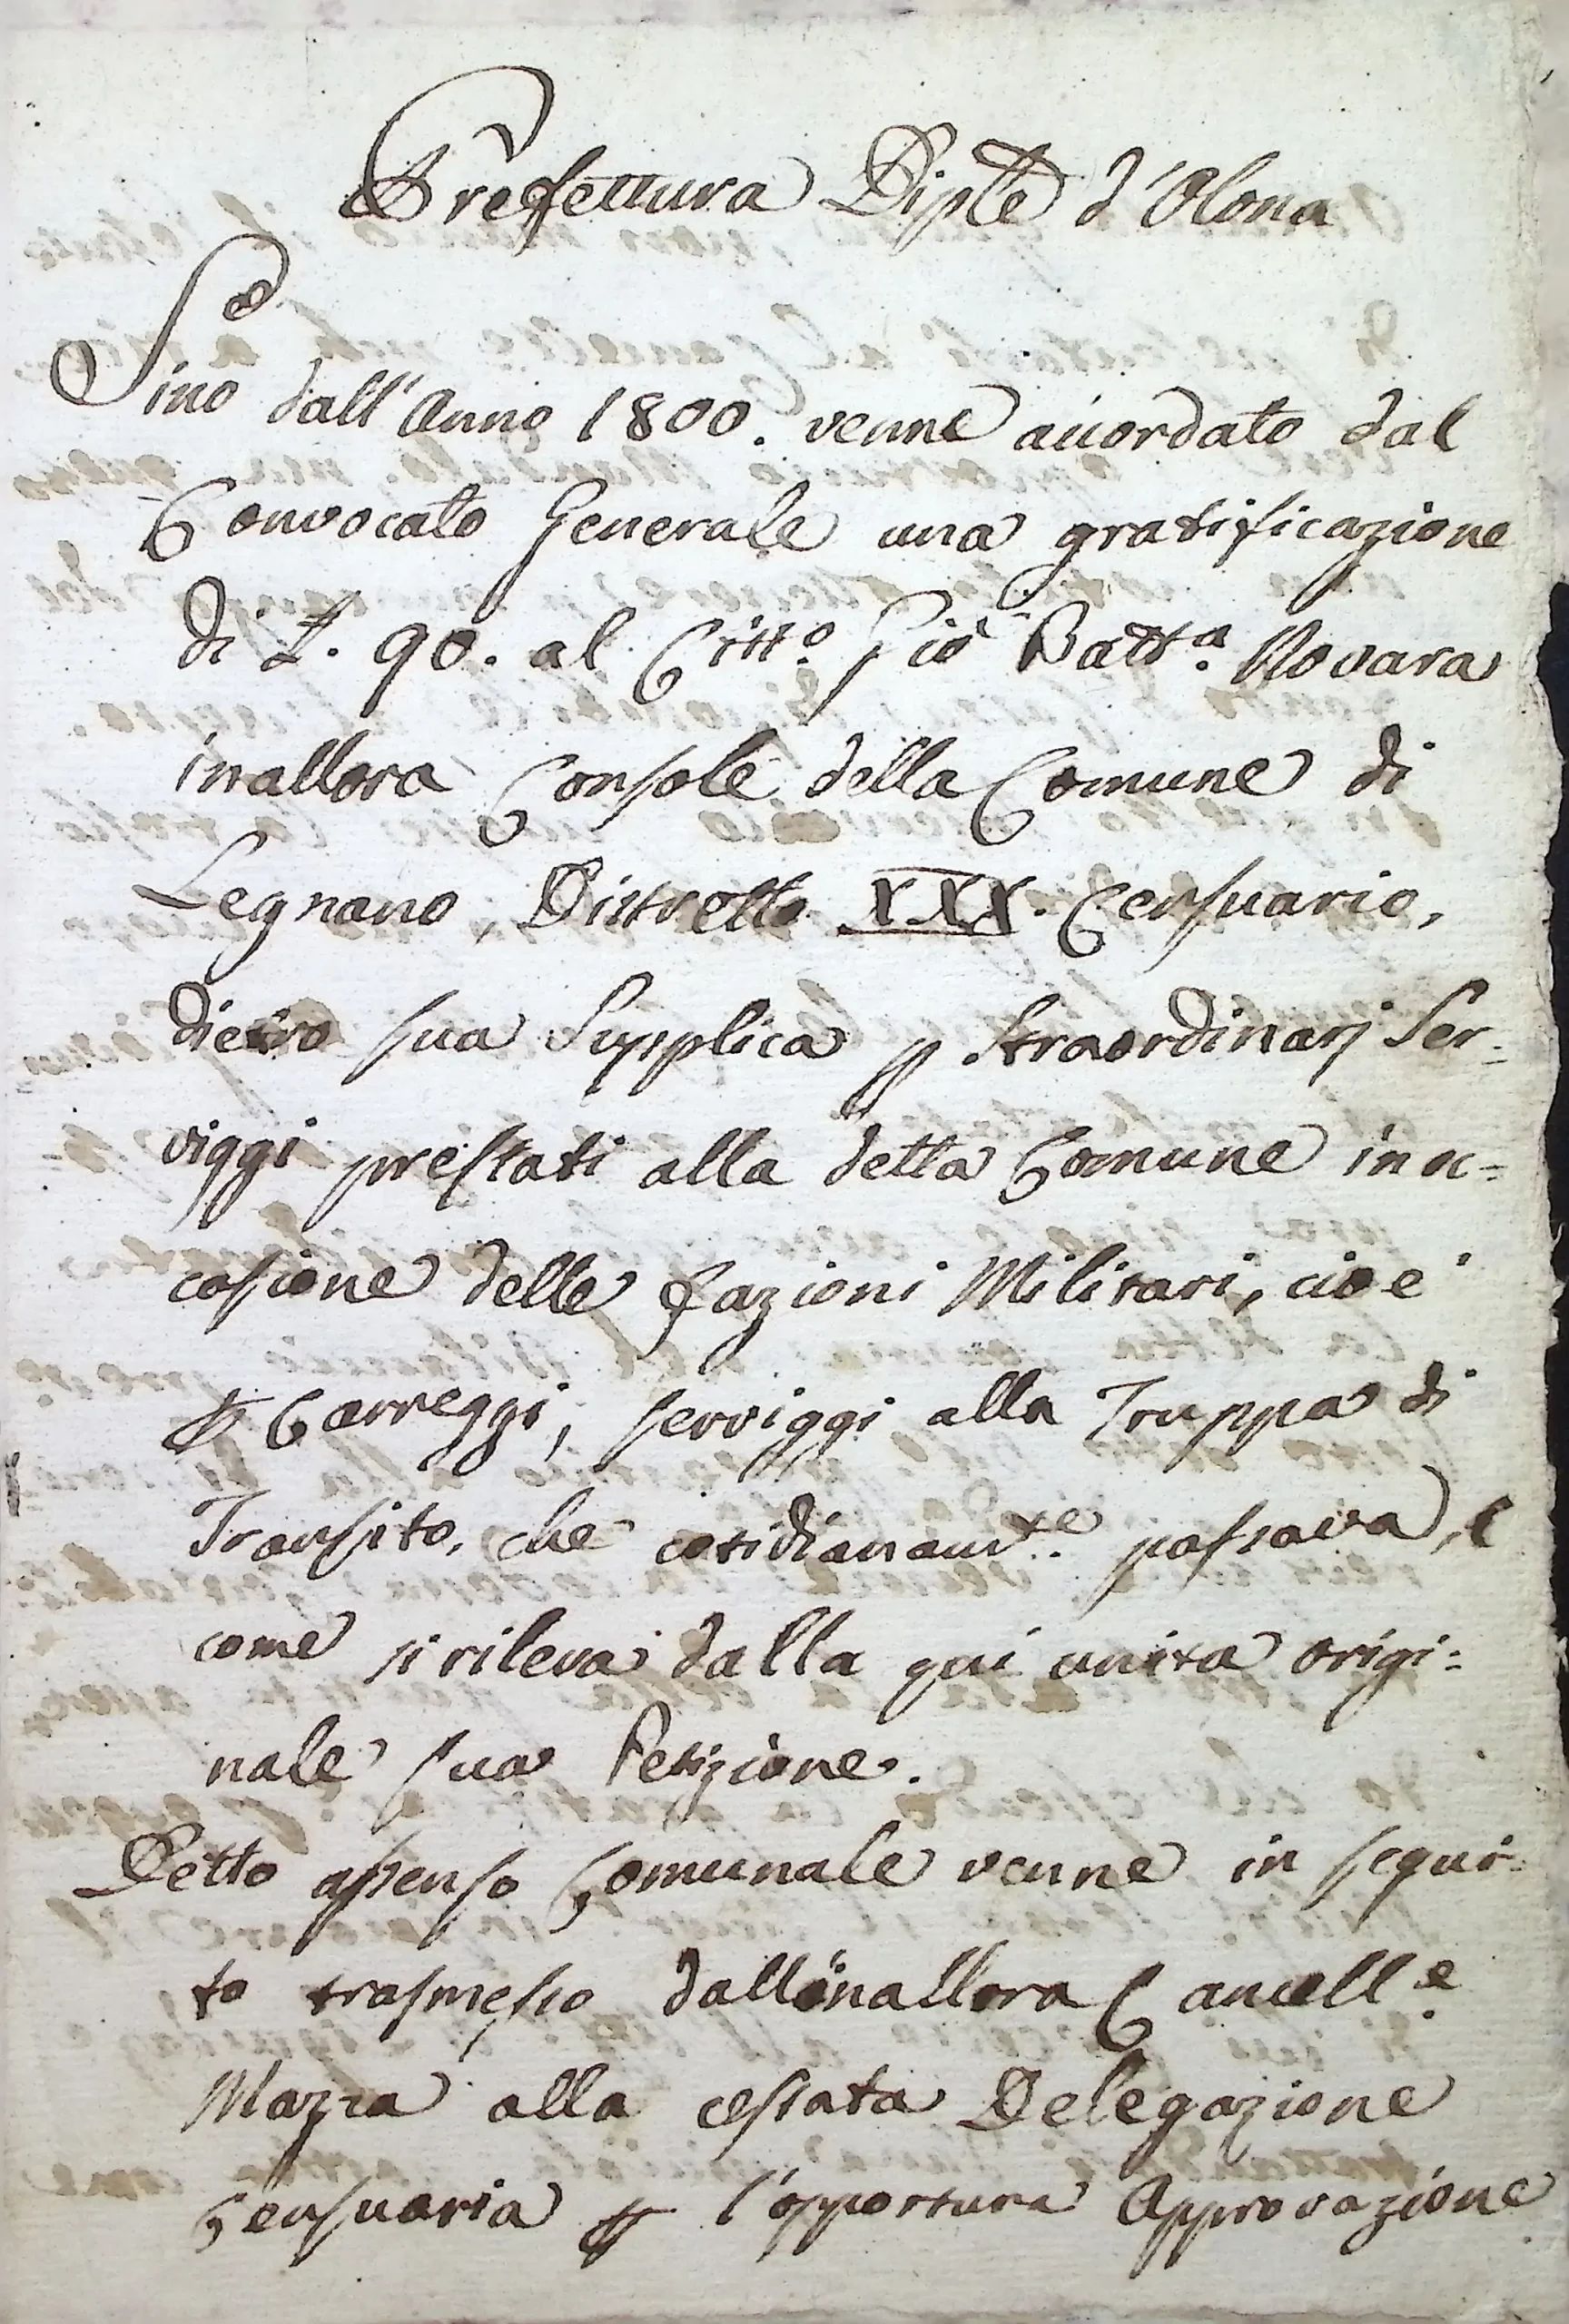 Prefettura Diple d'Olona
Sino dall'Anno 1800. venne accordato dal
Convocato Generale una gratificazione
di L. 90. al Citt.o Gio Batt.a Novara
inallora Console della Comune di
Legnano, Distretto XXX. Censuario,
dietro sua Supplica p Straordinarj Ser-
viggi prestati alla detta Comune in oc=
casione delle fazioni Militari, cioè
p Carreggi, serviggi alla Truppa di
Transito, che cotidianam.te passava, e
come si rileva dalla qui unita origi=
nale sua Petizione.
Detto assenso Comunale venne in segui=
to trasmesso dall'inallora Cancell.e
Mazza alla cessata Delegazione
Censuaria p l'opportuna Approvazione